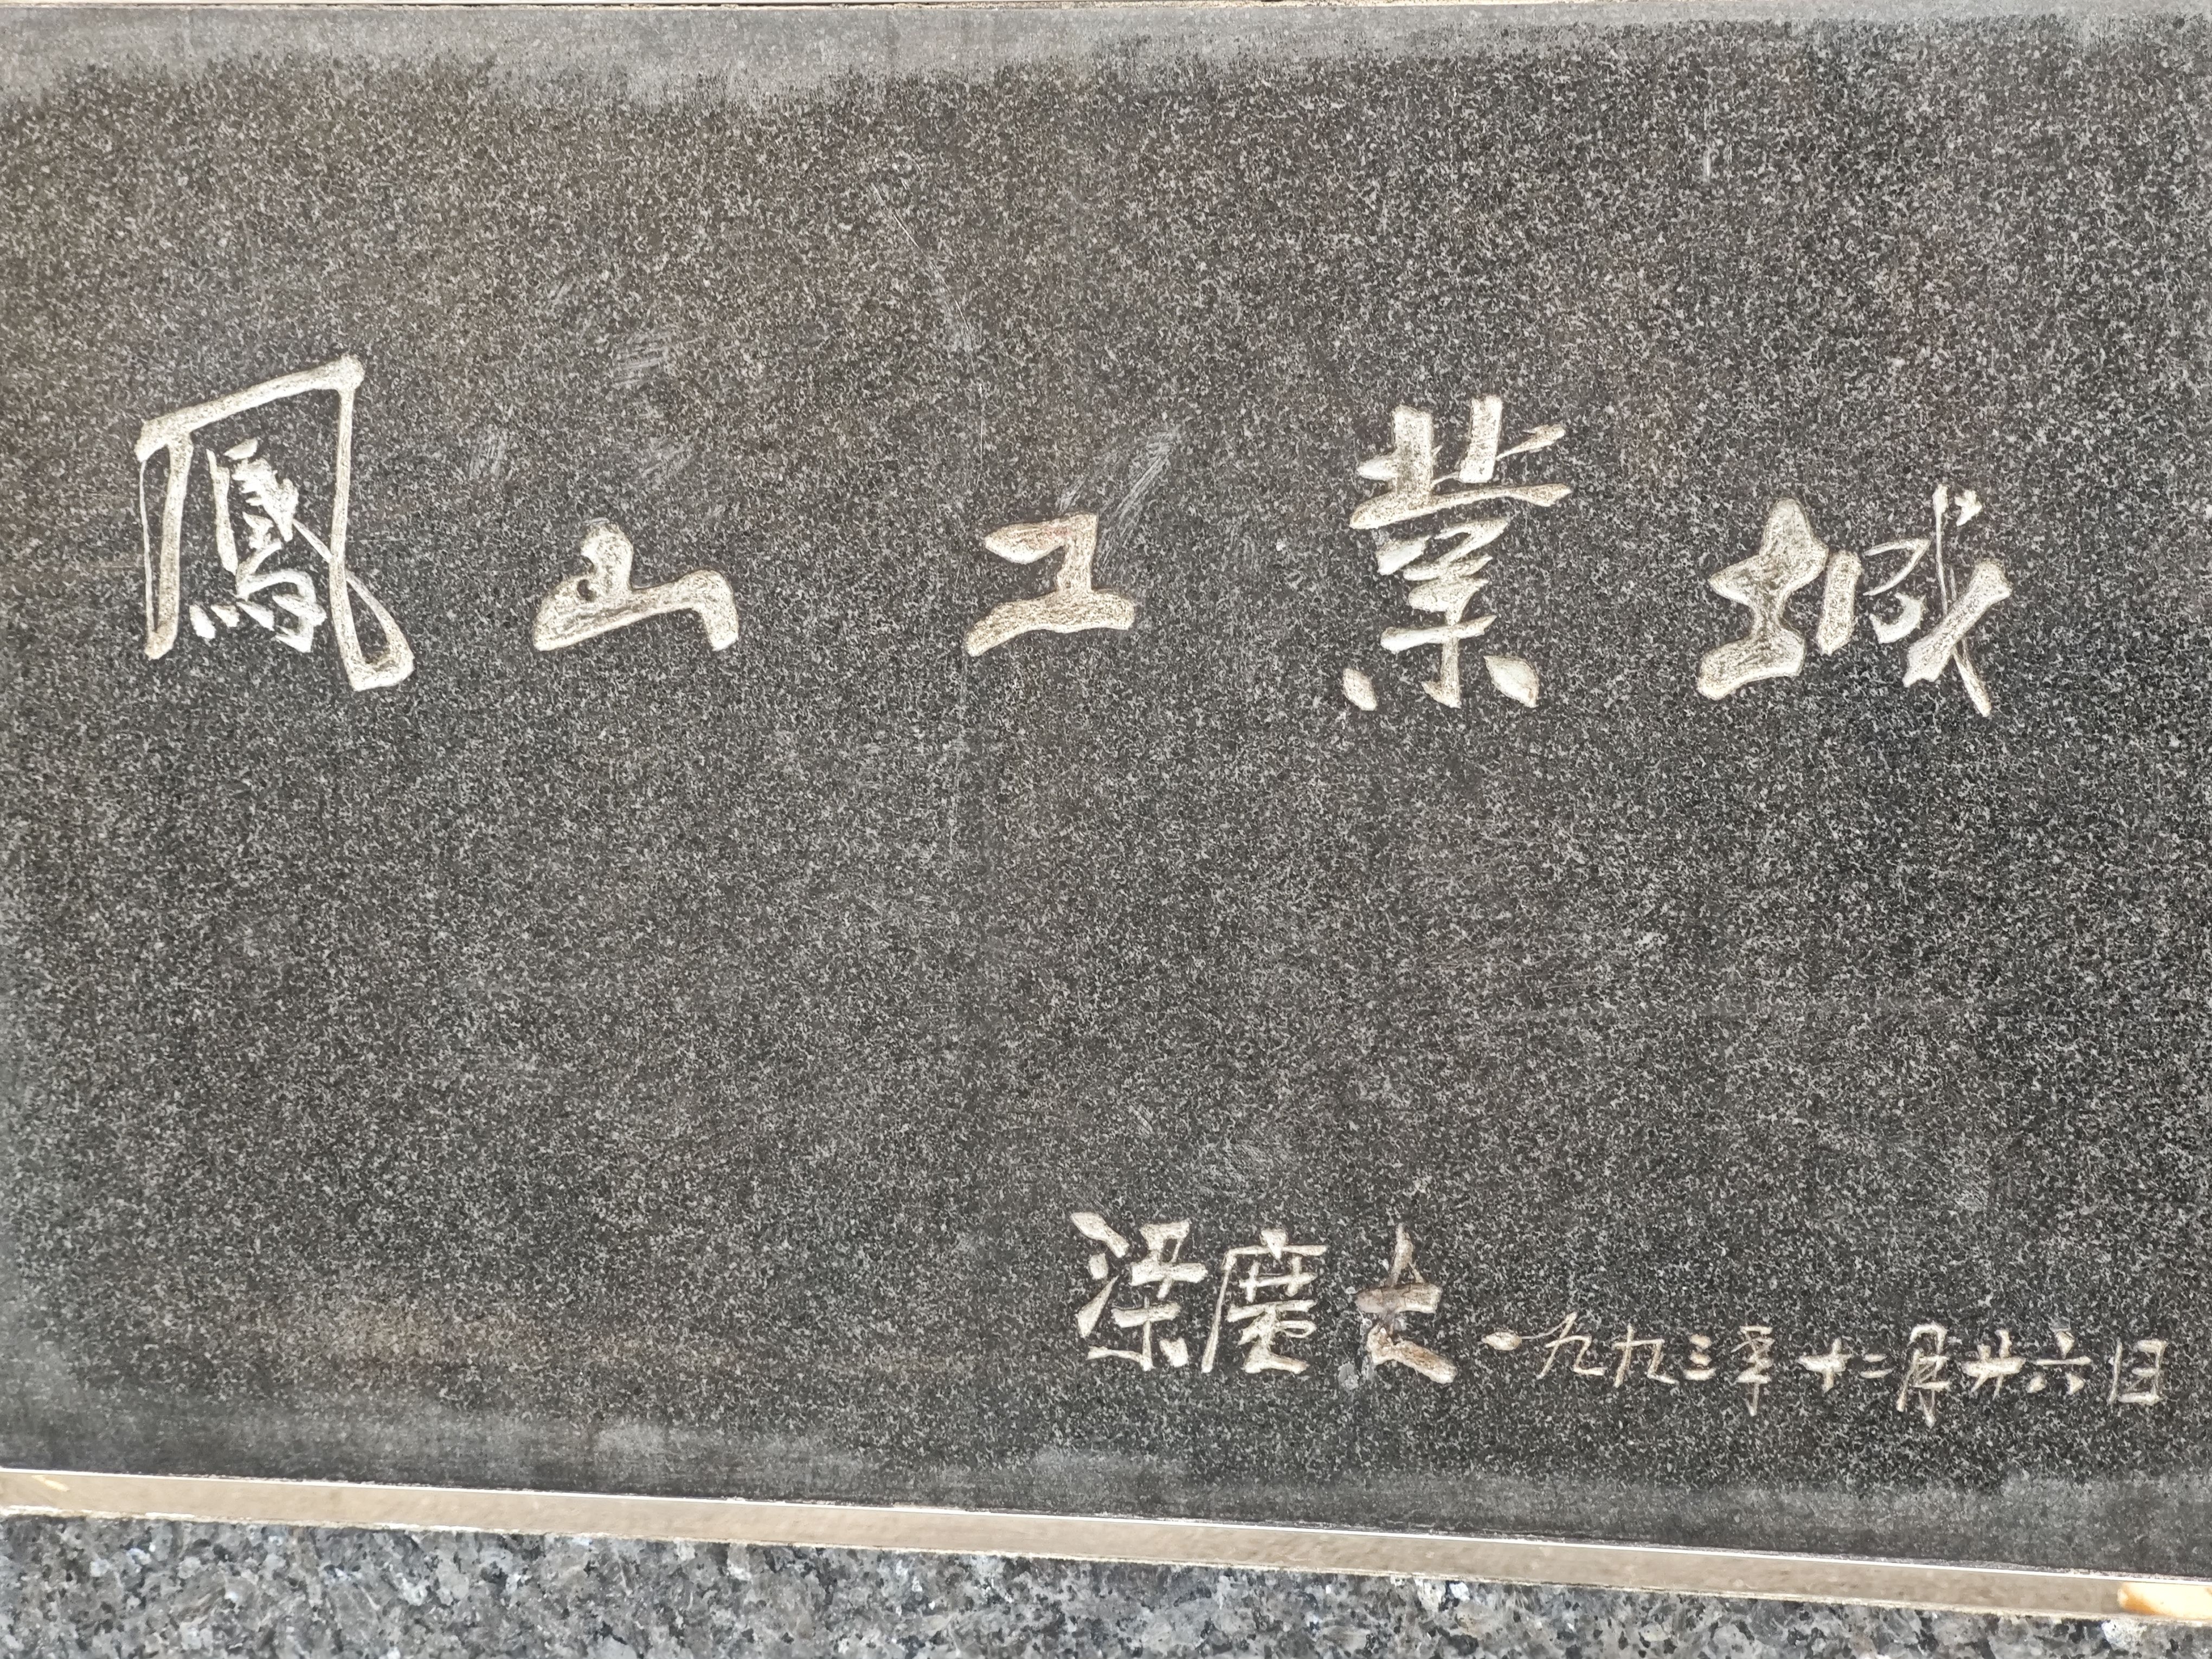 鳳山工業城
梁廣大 一九九三年十二月廿六日